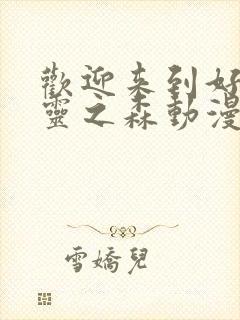 歡迎來到好
靈之森動漫
雪嬌兒